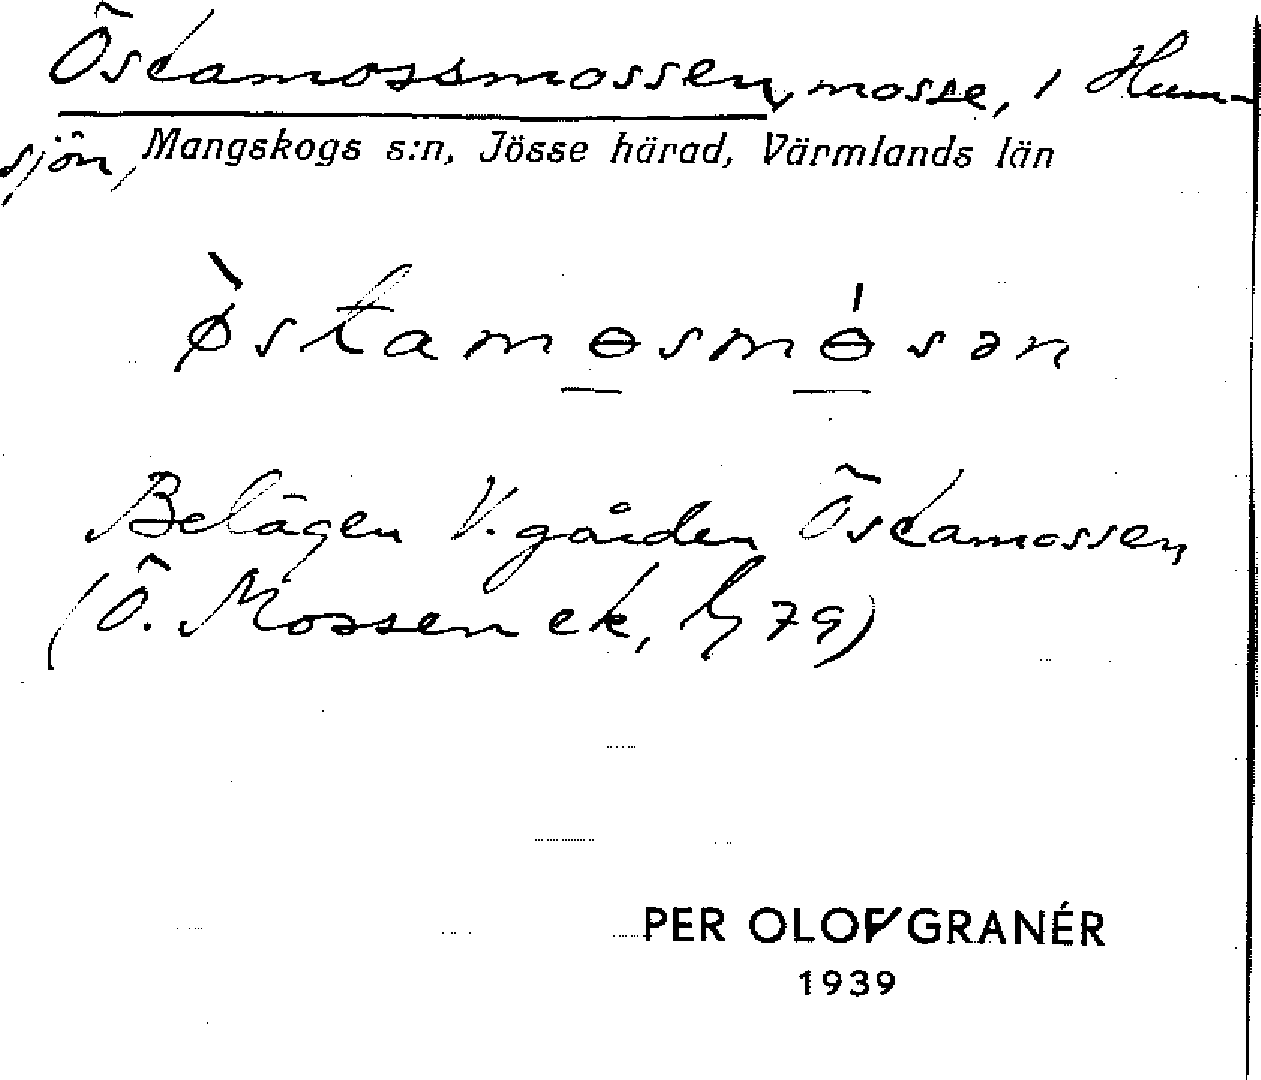 Östamossmossen, mosse, i Hum-
sjön, Mangskogs s:n, Jösse härad, Värmlands län
ø̀stamɵsmɵ́sən
Belägen V. gården Östamossen
(Ö. Mossen ek, 79)
PER OLOF GRANÉR
1939